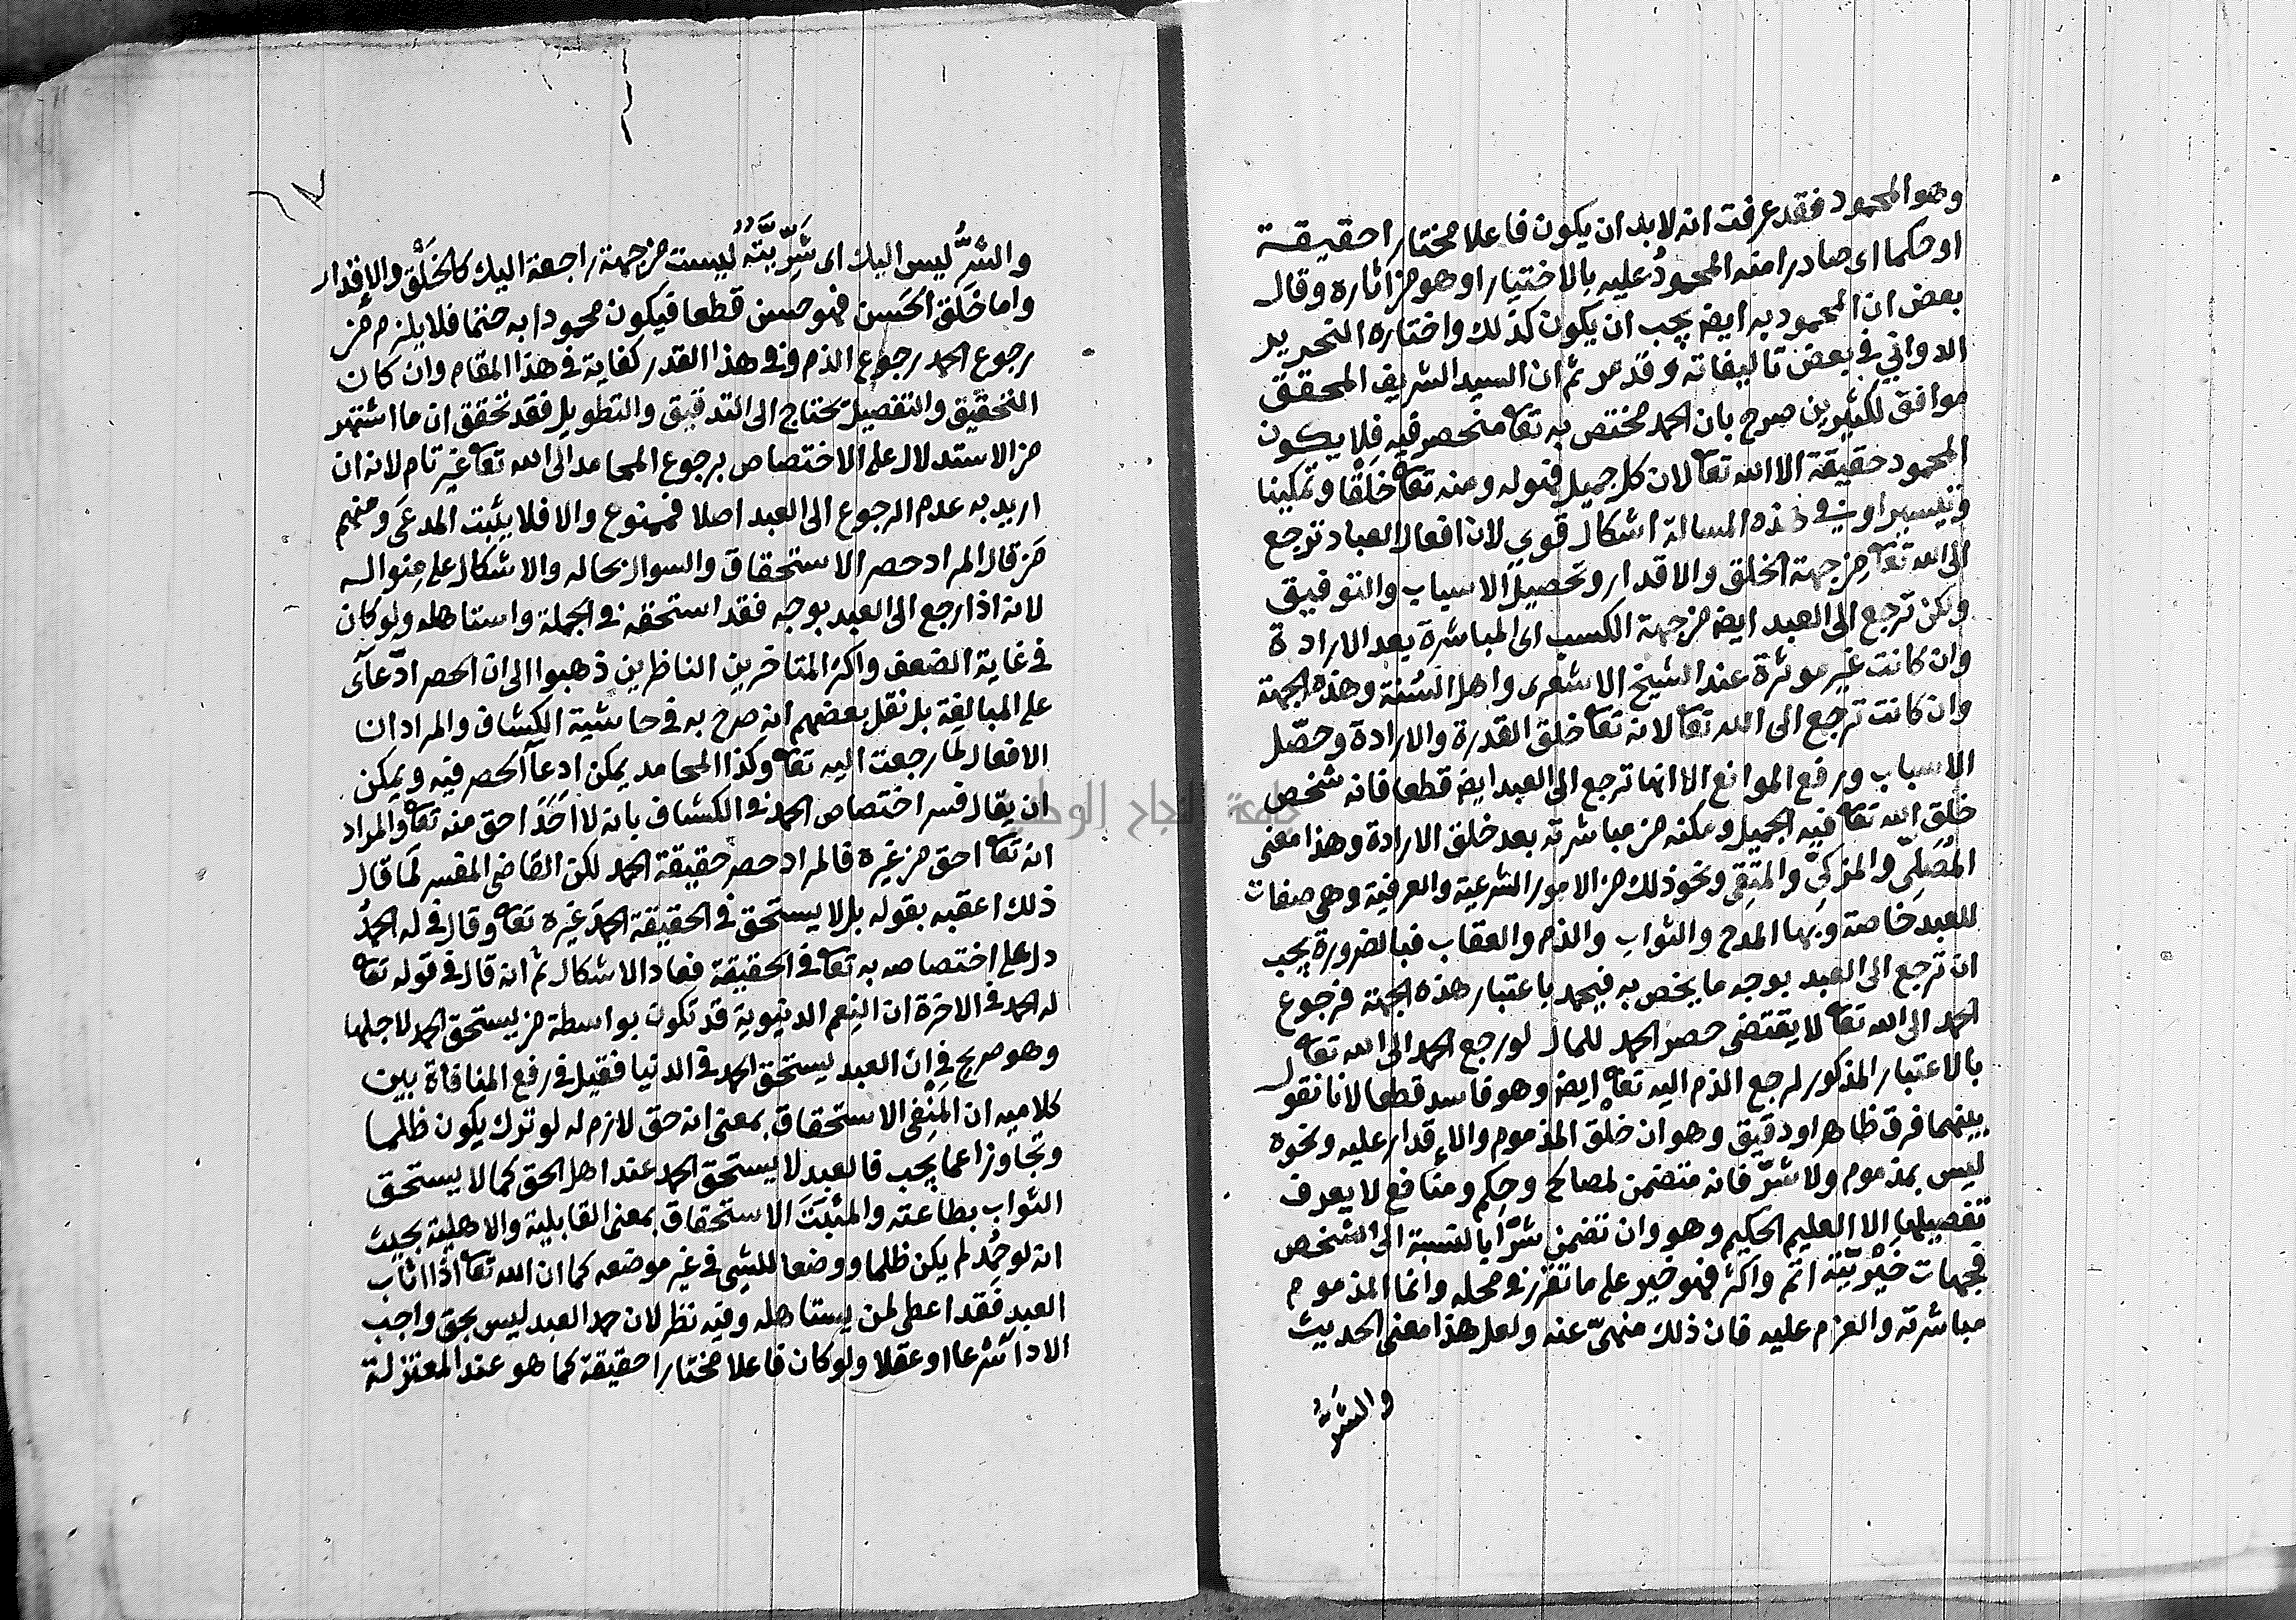 وهو المحمود فقد عرفت انه لا بد ان يكون فاعلا مختارا حقيقة
او حكما اى صادرا منه المحمودُ عليه بالاختيار او هو من اثاره وقال
بعض ان المحمود به ايضا يجب ان يكون كذلك واختاره النحرير
الدواني في بعض تاليفاته وقد مر ثم ان السيد الشريف المحقق
موافق لكثيرين صرح بان الحمد مختص به تعا منحصر فيه فلا يكون
المحمود حقيقة الا الله تعا لان كل جميل فهو له ومنه تعا خَلْقا وتمكينا
وتيسيرا وفي هذه المسالة اشكال قوي لان افعال العباد ترجع
الى الله تعا من جهة الخلق والاقدار وتحصيل الاسباب والتوفيق
ولكن ترجع الى العبد ايضا من جهة الكسب اى المباشرة بعد الارادة
وان كانت غير موثرة عند الشيخ الاشعرى واهل السُنّة وهذه الجهة
وان كانت ترجع الى الله تعا لانه تعا خلق القدرة والارادة وحصّل
الاسباب ورفع الموانع الا انها ترجع الى العبد ايضا قطعا فانه شخص
خلق الله تعا فيه الجميل ومكنه من مباشرته بعد خلق الارادة وهذا معنى
المُصَلِّى والمزكّى والمتقى ونحو ذلك من الامور الشرعية والعرفية وهى صفات
للعبد خاصة وبها المدح والثواب والذم والعقاب فبالضرورة يجب
ان ترجع الى العبد بوجه ما يخص به فيحمد باعتبار هذه الجهة فرجوع
الحمد الى الله تعا لا يقتضى حصر الحمد للمال لو رجع الحمد الى الله تعا
بالاعتبار المذكور لرجع الذم اليه تعا ايضا وهو فاسد قطعا لانا نقول
بينهما فرق ظاهر او دقيق وهو ان خلق المذموم والإقدار عليه ونحوه
ليس بمذموم ولا شرّ فانه متضمن لمصالح وحِكم ومنافع لا يعرف
تفصيلها الا العليم الحكيم وهو وان تضمن شرّا بالنسبة الى الشخص
فجهات خيْريّته اتم واكثر فهو خير على ما تقرر في محله وانما المذموم
مباشرته والعزم عليه فان ذلك منهىّ عنه ولعل هذا معنى الحديث
والشَّرُّ
والشرُّ ليس اليك اى شَرِّيَّتُه ليست من جهة راجعة اليك كالخَلْق والإقدار
واما خَلق الحَسَن فهو حسن قطعا فيكون محمودا به حتما فلا يلزم من
رجوع الحمد رجوع الذم وفي هذا القدر كفاية في هذا المقام وان كان
التحقيق والتفصيل يحتاج الى التدقيق والتطويل فقد تحقق ان ما اشتهر
من الاستدلال على الاختصاص برجوع المحامد الى الله تعا غير تام لانه ان
اريد به عدم الرجوع الى العبد اصلا فممنوع والا فلا يثبت المدعَى ومنهم
مَن قال المراد حصر الاستحقاق والسوال بحاله والاشكال على منواله
لانه اذا رجع الى العبد بوجه فقد استحقه في الجملة واستاهله ولو كان
في غاية الضعف واكثر المتاخرين الناظرين ذهبوا الى ان الحصر ادّعآئى
على المبالغة بل نقل بعضهم انه صرح به في حاشية الكشاف والمراد ان
الافعال لما رجعت اليه تعا وكذا المحامد يمكن ادعآ الحصر فيه ويمكن
ان يقال فسر اختصاص الحمد في الكشاف بانه لا احَدَ احق منه تعا والمراد
انه تعا احق من غيره فالمراد حصر حقيقة الحمد لكن القاضى المفسر لَمّا قال
ذلك اعقبه بقوله بل لا يستحق في الحقيقة الحمدَ غيره تعا وقال في له الحمدُ
دل على اختصاصه به تعا في الحقيقة فعاد الاشكال ثم انه قال في قوله تعا
له الحمد في الاخرة ان النِعم الدنيوية قد تكون بواسطة من يستحق الحمد لاجلها
وهو صريح في ان العبد يستحق الحمد في الدنيا فقيل في رفع المنافاة بين
كلاميه ان المنفى الاستحقاق بمعنى انه حق لازم له لو ترك يكون ظلما
وتجاوزا عما يجب فالعبد لا يستحق الحمد عند اهل الحق كما لا يستحق
الثواب بطاعته والمثبَت الاستحقاق بمعنى القابلية والاهلية بحيث
انه لو حُمد لم يكن ظلما ووضعا للشئ في غير موضعه كما ان الله تعا اذا اثاب
العبد فقد اعطى لمن يستاهله وفيه نظر لان حمد العبد ليس بحق واجب
الادآ شرعا او عقلا ولو كان فاعلا مختارا حقيقة كما هو عند المعتزلة
جامعة النجاح الوطنية